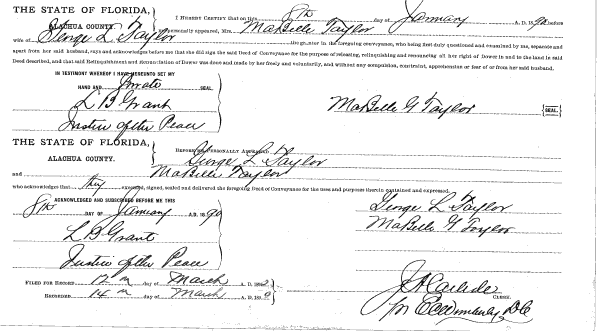 THE STATE OF FLORIDA,
ALACHUA COUNTY.
I HEREBY CERTIFY that on this 8th day of January A. D. 1890 before
me personally appeared, Mrs. MaBelle Taylor
wife of George L. Taylor
the grantor in the foregoing conveyance, who being first duly questioned and examined by me, separate and
apart from her said husband, says and acknowledges before me that she did sign the said Deed of Conveyance for the purpose of releasing, relinquishing and renouncing all her right of Dower in and to the land in said
Deed described, and that said Relinquishment and Renunciation of Dower was done and made by her freely and voluntarily, and without any compulsion, constraint, apprehension or fear of or from her said husband.
IN TESTIMONY WHEREOF I HAVE HEREUNTO SET MY
HAND AND Private SEAL.
L B Grant
Justice of the Peace
MaBelle G Taylor SEAL.
THE STATE OF FLORIDA,
ALACHUA COUNTY.
BEFORE ME PERSONALLY APPEARED
George L Taylor
and MaBelle Taylor
who acknowledged that they executed, signed, sealed and delivered the foregoing Deed of Conveyance for the uses and purposes therein contained and expressed.
ACKNOWLEDGED AND SUBSCRIBED BEFORE ME THIS
8th DAY OF January A. D. 1890
George L Taylor
MaBelle G Taylor
L B Grant
Justice of the Peace
FILED FOR RECORD 12 day of March A. D. 1890
RECORDED 14 day of March A. D. 1890
J A Carlisle CLERK.
per DC